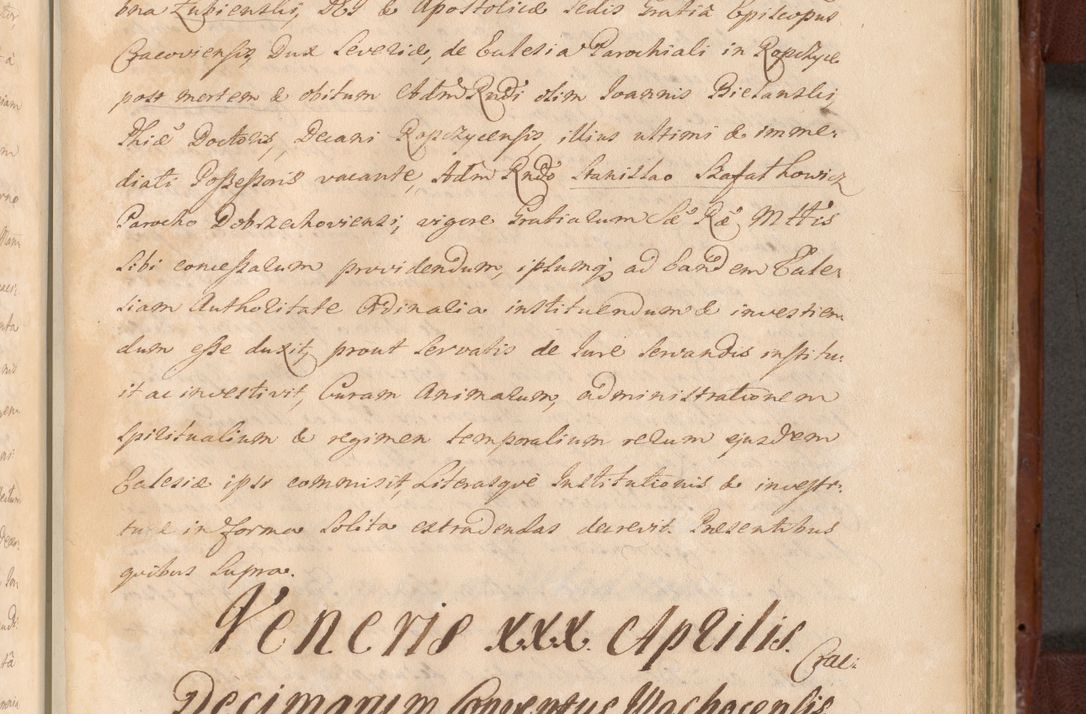 bna Łubienski, DEI & Apostolicæ Sedis Gratiâ Episcopus
Cracoviensis, Dux Severiæ, de Eclesia Parochiali in Ropczyce
post mortem & obitum AdmRndi olim Joannis Bielanski,
Phiæ Doctoris, Decani Ropczycensis, illius ultimi & imme-
diati Possessoris vacante, Adm Rndo Stanislao Szafathowicz
Parocho Dobrzehoviensi, vigore Gratiarum Sæ Ræ Mttis
sibi concessarum providendum, ipsumq3 ad Eandem Ecle-
siam Authoritate Ordinaria instituendum & investien
dum esse duxit, prout servatis de Jure servandis institu:
it ac investivit, Curam Animarum, administrationem
spiritualium & regimen temporalium rerum ejusdem
Eclesiæ ipsi commisit, Literasque Institutionis & investi-
turæ in forma solita extradendas decrevit. Præsentibus
quibus supra.
Veneris XXX. Aprilis.
Crac:
Decimarum Conventus Wachocensis